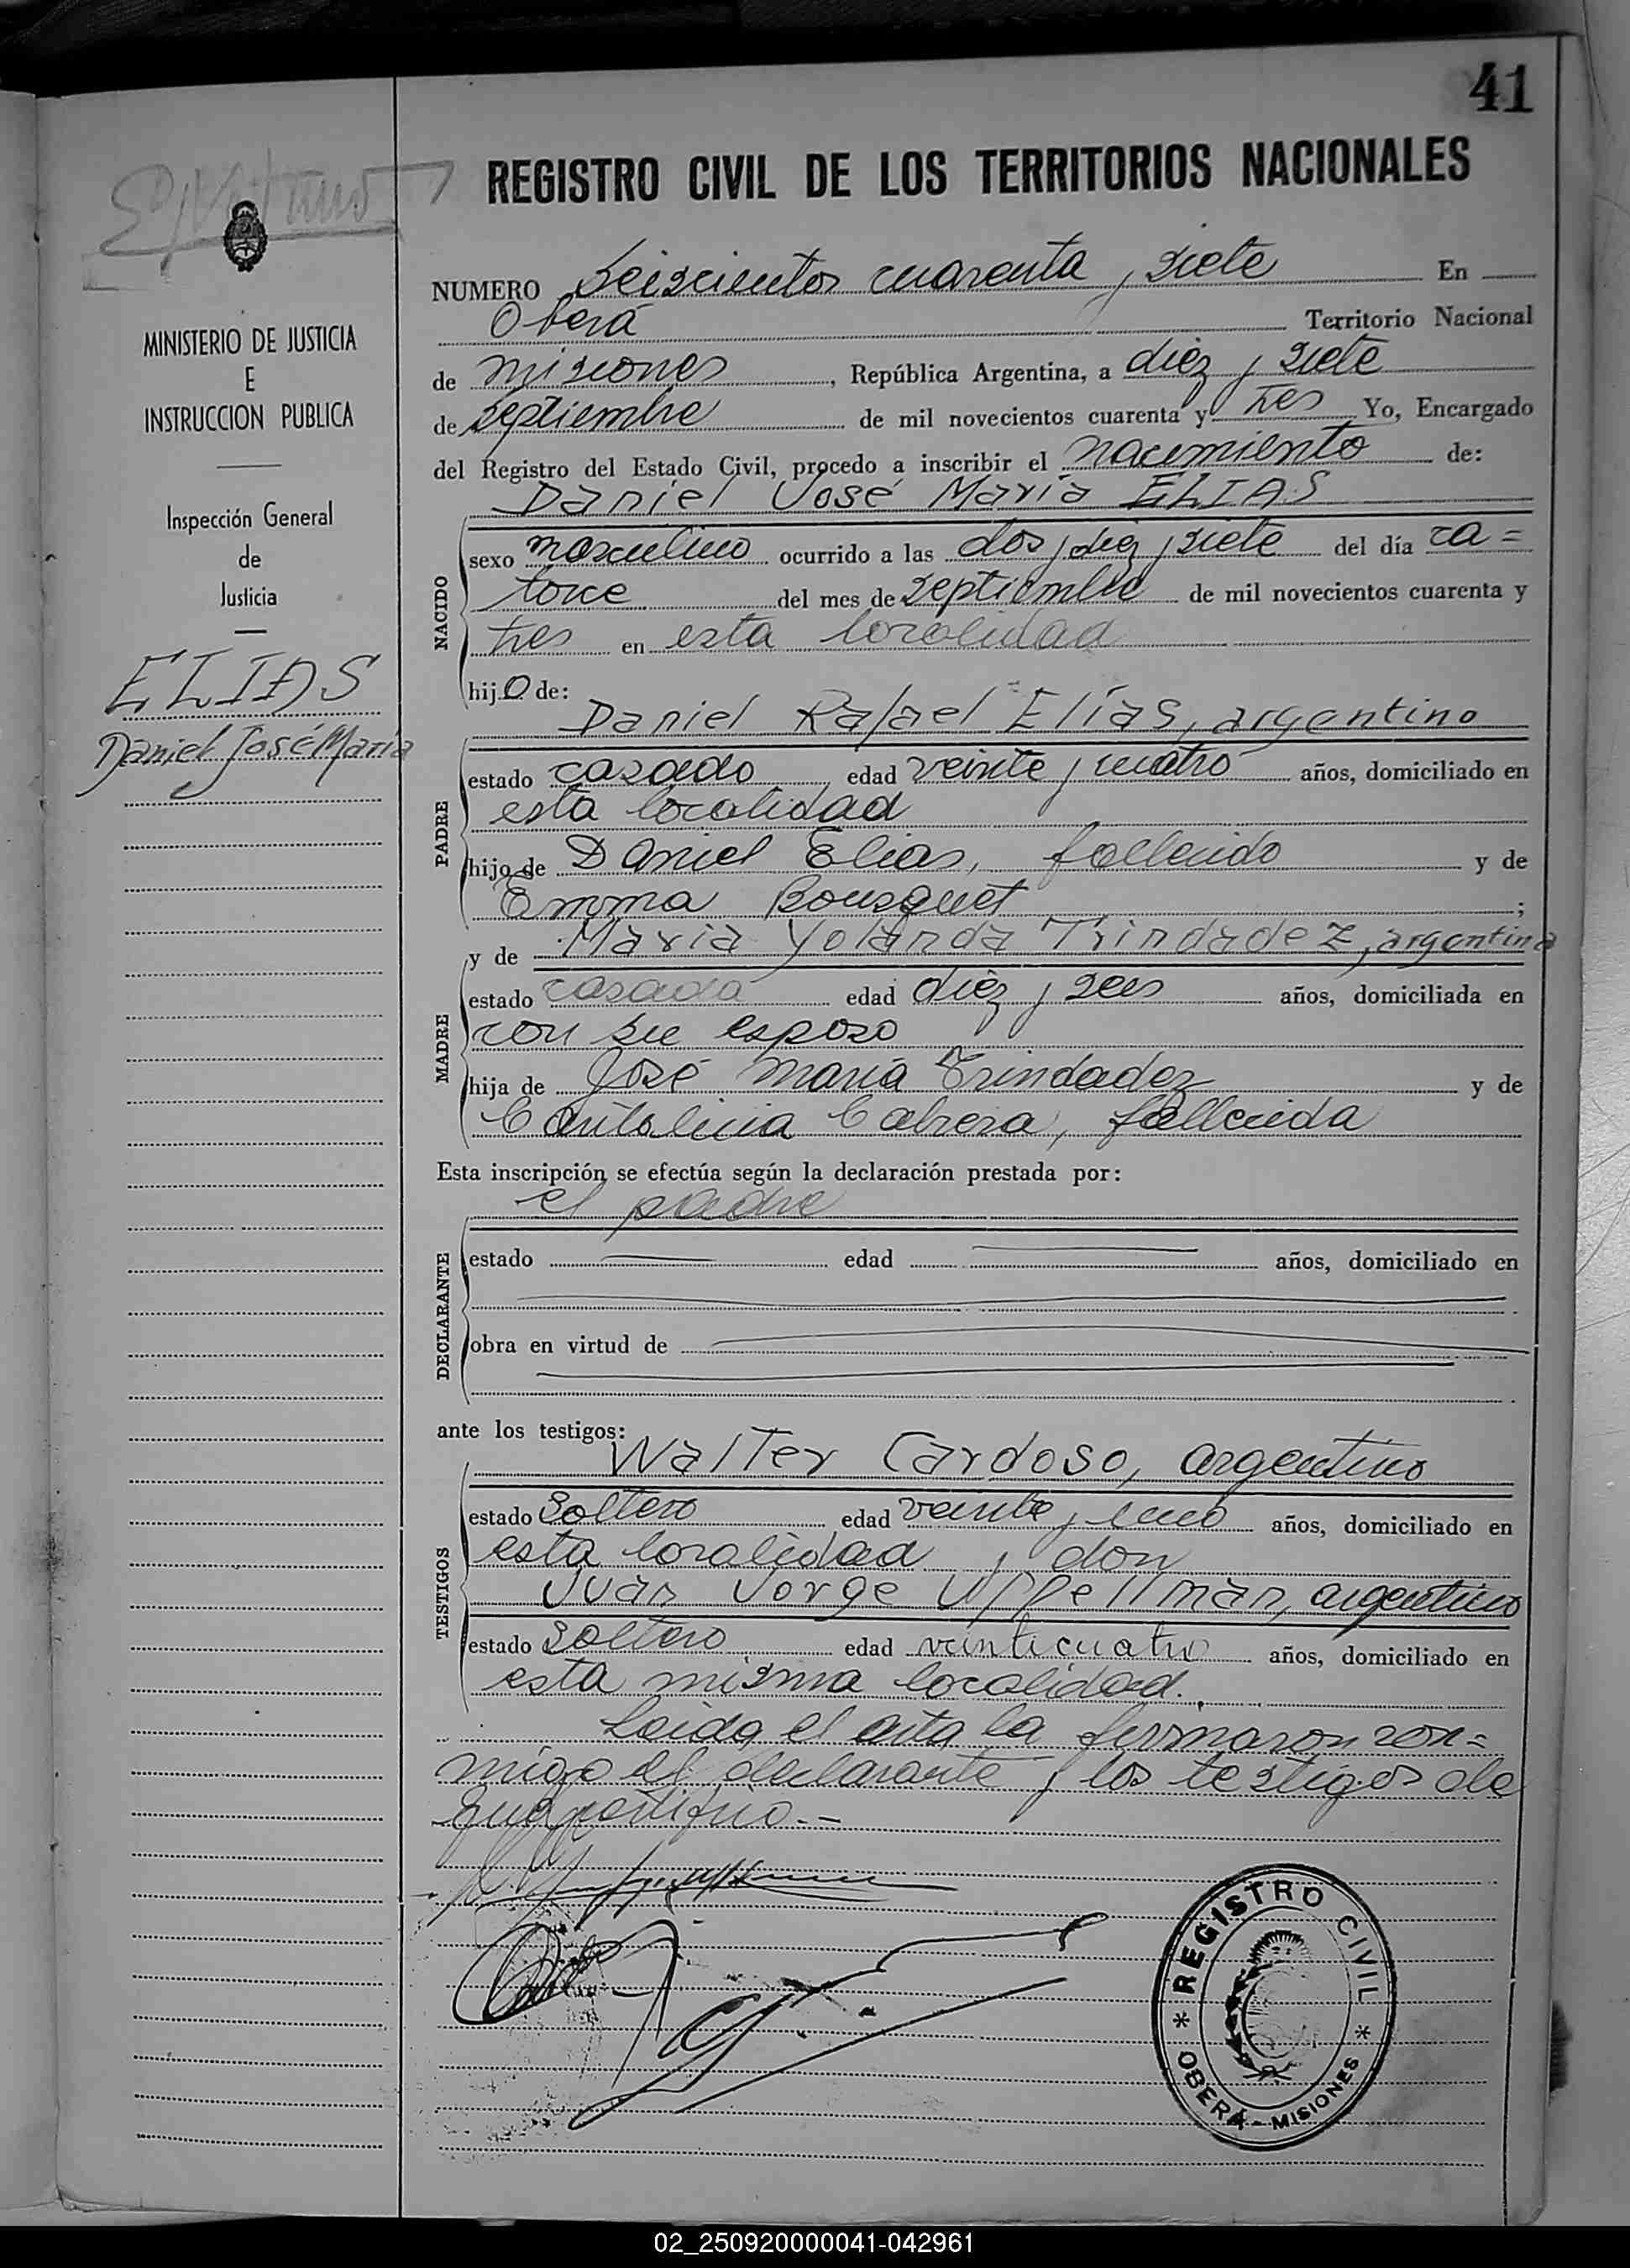 41
REGISTRO CIVIL DE LOS TERRITORIOS NACIONALES
MINISTERIO DE JUSTICIA
E
INSTRUCCION PUBLICA
Inspección General
de
Justicia
ELIAS
Daniel José María
NUMERO Seiscientos cuarenta y siete En
Oberá Territorio Nacional
de Misiones, República Argentina, a diez y siete
de Septiembre de mil novecientos cuarenta y tres Yo, Encargado
del Registro del Estado Civil, procedo a inscribir el nacimiento de:
Daniel José María ELIAS
NACIDO
sexo masculino ocurrido a las dos y diez y siete del día ca=
torce del mes de septiembre de mil novecientos cuarenta y
tres en esta localidad
hijo de:
Daniel Rafael Elías, argentino
PADRE
estado casado edad veinte y cuatro años, domiciliado en
esta localidad
hijo de Daniel Elias, fallecido y de
Emma Bousquet ;
y de Maria Yolanda Trindadez, argentina
MADRE
estado casada edad diez y seis años, domiciliada en
con su esposo
hija de José María Trindadez y de
Cabrera, fallecida
Esta inscripción se efectúa según la declaración prestada por:
el padre
DECLARANTE
estado edad años, domiciliado en
obra en virtud de
ante los testigos:
Walter Cardoso, argentino
TESTIGOS
estado soltero edad veinte y uno años, domiciliado en
esta localidad y don
Juan Jorge Uffellman, argentino
estado soltero edad veinticuatro años, domiciliado en
esta misma localidad.
Leida el acta la firmaron con=
migo el declarante y los testigos de
que certifico.-
REGISTRO CIVIL
* OBERÁ - MISIONES *
02_250920000041-042961